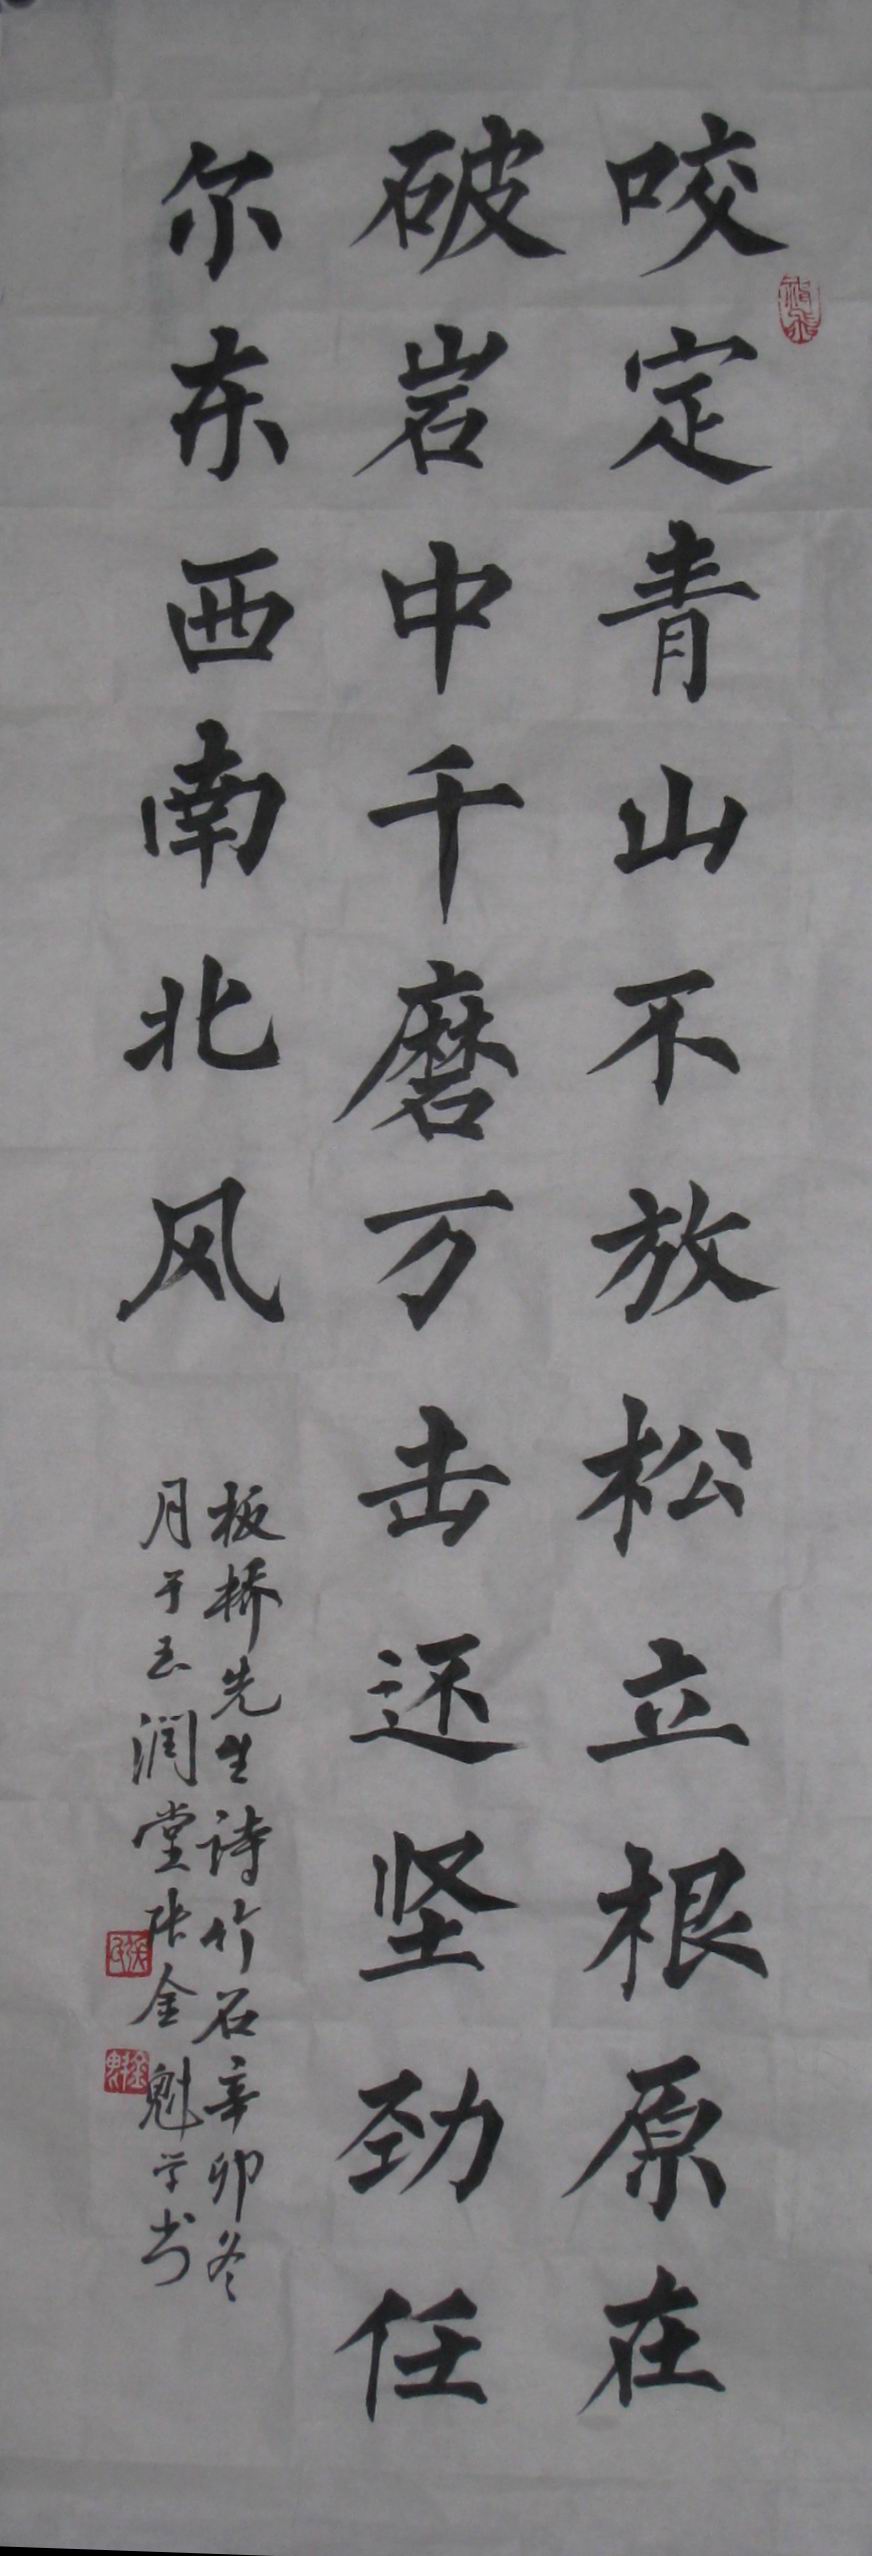 咬定青山不放松立根原在
破岩中千磨万击还坚劲任
尔东西南北风
板桥先生诗竹石辛卯冬
月于玉润堂张金魁学书